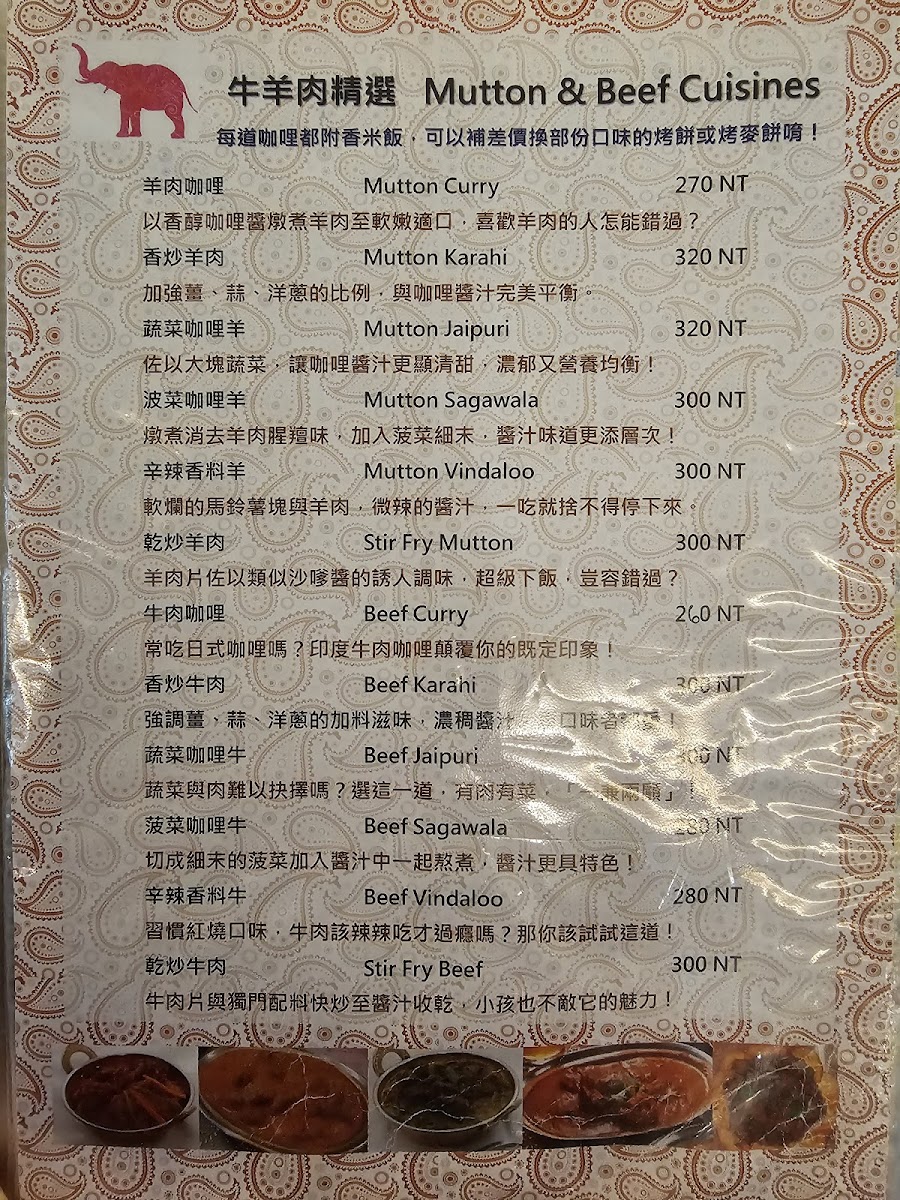 牛羊肉精選 Mutton & Beef Cuisines
每道咖哩都附香米飯，可以補差價換部份口味的烤餅或烤麥餅唷！
羊肉咖哩 Mutton Curry 270 NT
以香醇咖哩醬燉煮羊肉至軟嫩適口，喜歡羊肉的人怎能錯過？
香炒羊肉 Mutton Karahi 320 NT
加強薑、蒜、洋蔥的比例，與咖哩醬汁完美平衡。
蔬菜咖哩羊 Mutton Jaipuri 320 NT
佐以大塊蔬菜，讓咖哩醬汁更顯清甜，濃郁又營養均衡！
波菜咖哩羊 Mutton Sagawala 300 NT
燉煮消去羊肉腥羶味，加入菠菜細末，醬汁味道更添層次！
辛辣香料羊 Mutton Vindaloo 300 NT
軟爛的馬鈴薯塊與羊肉，微辣的醬汁，一吃就捨不得停下來。
乾炒羊肉 Stir Fry Mutton 300 NT
羊肉片佐以類似沙嗲醬的誘人調味，超級下飯，豈容錯過？
牛肉咖哩 Beef Curry 260 NT
常吃日式咖哩嗎？印度牛肉咖哩顛覆你的既定印象！
香炒牛肉 Beef Karahi 300 NT
強調薑、蒜、洋蔥的加料滋味，濃稠醬汁 口味者 ！
蔬菜咖哩牛 Beef Jaipuri 300 NT
蔬菜與肉難以抉擇嗎？選這一道，有肉有菜，「一兼兩顧」！
菠菜咖哩牛 Beef Sagawala 280 NT
切成細末的菠菜加入醬汁中一起熬煮，醬汁更具特色！
辛辣香料牛 Beef Vindaloo 280 NT
習慣紅燒口味，牛肉該辣辣吃才過癮嗎？那你該試試這道！
乾炒牛肉 Stir Fry Beef 300 NT
牛肉片與獨門配料快炒至醬汁收乾，小孩也不敵它的魅力！